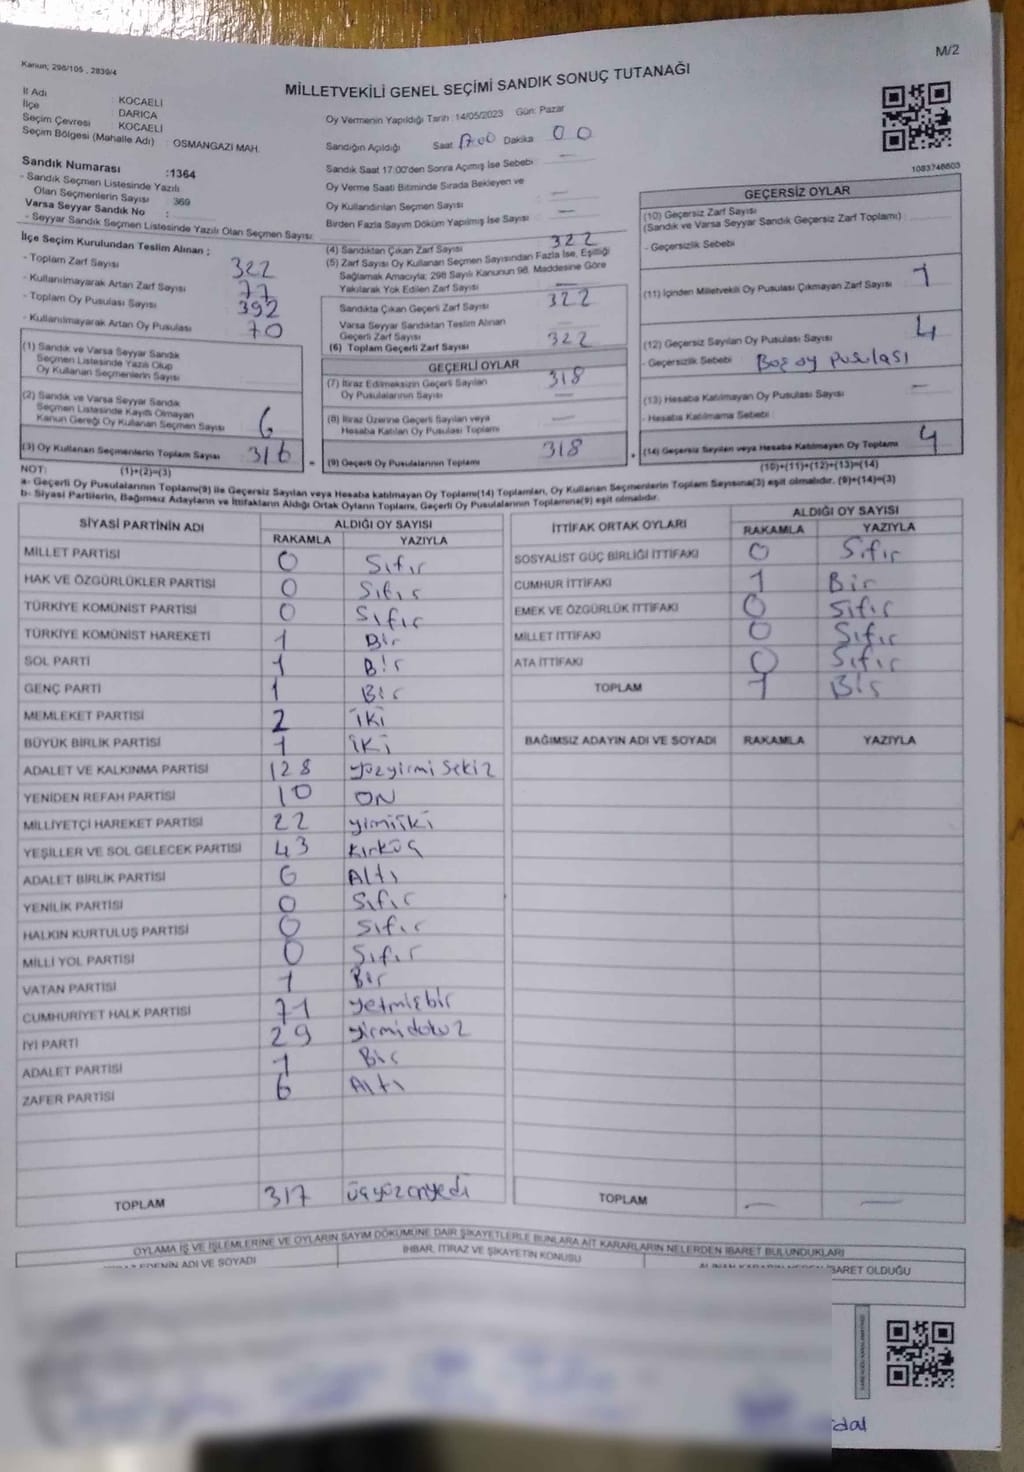 M/2
Kanun; 298/105 , 2839/4
MİLLETVEKİLİ GENEL SEÇİMİ SANDIK SONUÇ TUTANAĞI
İl Adı : KOCAELİ
İlçe DARICA
Seçim Çevresi KOCAELİ
Seçim Bölgesi (Mahalle Adı) : OSMANGAZİ MAH.
Sandık Numarası :1364
- Sandık Seçmen Listesinde Yazılı
Olan Seçmenlerin Sayısı : 369
Varsa Seyyar Sandık No :
- Seyyar Sandık Seçmen Listesinde Yazılı Olan Seçmen Sayısı:
Oy Vermenin Yapıldığı Tarih :14/05/2023 Gün: Pazar
Sandığın Açıldığı Saat 17.00 Dakika 00
Sandık Saat 17:00'den Sonra Açımış İse Sebebi : —
Oy Verme Saati Bitiminde Sırada Bekleyen ve
Oy Kullandırılan Seçmen Sayısı —
Birden Fazla Sayım Döküm Yapılmış İse Sayısı —
1083748603
İlçe Seçim Kurulundan Teslim Alınan ;
- Toplam Zarf Sayısı 322
- Kullanılmayarak Artan Zarf Sayısı 77
- Toplam Oy Pusulası Sayısı 392
- Kullanılmayarak Artan Oy Pusulası 70
(1) Sandık ve Varsa Seyyar Sandık
Seçmen Listesinde Yazılı Olup
Oy Kullanan Seçmenlerin Sayısı
(2) Sandık ve Varsa Seyyar Sandık
Seçmen Listesinde Kayıtlı Olmayan
Kanun Gereği Oy Kullanan Seçmen Sayısı 6
(3) Oy Kullanan Seçmenlerin Toplam Sayısı 316
(1)+(2)=(3)
(4) Sandıktan Çıkan Zarf Sayısı 322
(5) Zarf Sayısı Oy Kullanan Seçmen Sayısından Fazla İse, Eşitliği
Sağlamak Amacıyla; 298 Sayılı Kanunun 98. Maddesine Göre
Yakılarak Yok Edilen Zarf Sayısı —
Sandıkta Çıkan Geçerli Zarf Sayısı 322
Varsa Seyyar Sandıktan Teslim Alınan
Geçerli Zarf Sayısı —
(6) Toplam Geçerli Zarf Sayısı 322
GEÇERLİ OYLAR
(7) İtiraz Edilmeksizin Geçerli Sayılan 318
Oy Pusulalarının Sayısı —
(8) İtiraz Üzerine Geçerli Sayılan veya —
Hesaba Katılan Oy Pusulası Toplamı
(9) Geçerli Oy Pusulalarının Toplamı 318
GEÇERSİZ OYLAR
(10) Geçersiz Zarf Sayısı
(Sandık ve Varsa Seyyar Sandık Geçersiz Zarf Toplamı)
- Geçersizlik Sebebi
(11) İçinden Milletvekili Oy Pusulası Çıkmayan Zarf Sayısı 1
(12) Geçersiz Sayılan Oy Pusulası Sayısı 4
- Geçersizlik Sebebi : Boş oy pusulası
(13) Hesaba Katılmayan Oy Pusulası Sayısı —
- Hesaba Katılmama Sebebi :
(14) Geçersiz Sayılan veya Hesaba Katılmayan Oy Toplamı 4
(10)+(11)+(12)+(13)=(14)
NOT:
a- Geçerli Oy Pusulalarının Toplamı(9) ile Geçersiz Sayılan veya Hesaba katılmayan Oy Toplamı(14) Toplamları, Oy Kullanan Seçmenlerin Toplam Sayısına(3) eşit olmalıdır. (9)+(14)=(3)
b- Siyasi Partilerin, Bağımsız Adayların ve İttifakların Aldığı Ortak Oyların Toplamı, Geçerli Oy Pusulalarının Toplamına(9) eşit olmalıdır.
SİYASİ PARTİNİN ADI ALDIĞI OY SAYISI
RAKAMLA YAZIYLA
MİLLET PARTİSİ 0 Sıfır
HAK VE ÖZGÜRLÜKLER PARTİSİ 0 Sıfır
TÜRKİYE KOMÜNİST PARTİSİ 0 Sıfır
TÜRKİYE KOMÜNİST HAREKETİ 1 Bir
SOL PARTİ 1 Bir
GENÇ PARTİ 1 Bir
MEMLEKET PARTİSİ 2 iki
BÜYÜK BİRLİK PARTİSİ 1 iki
ADALET VE KALKINMA PARTİSİ 128 yüzyirmi sekiz
YENİDEN REFAH PARTİSİ 10 ON
MİLLİYETÇİ HAREKET PARTİSİ 22 yimiiki
YEŞİLLER VE SOL GELECEK PARTİSİ 43 Kırküç
ADALET BİRLİK PARTİSİ 6 Altı
YENİLİK PARTİSİ 0 Sıfır
HALKIN KURTULUŞ PARTİSİ 0 Sıfır
MİLLİ YOL PARTİSİ 0 Sıfır
VATAN PARTİSİ 1 Bir
CUMHURİYET HALK PARTİSİ 71 yetmişbir
İYİ PARTİ 29 yirmidokuz
ADALET PARTİSİ 1 Bir
ZAFER PARTİSİ 6 Altı
TOPLAM 317 üçyüzonyedi
İTTİFAK ORTAK OYLARI ALDIĞI OY SAYISI
RAKAMLA YAZIYLA
SOSYALİST GÜÇ BİRLİĞİ İTTİFAKI 0 Sıfır
CUMHUR İTTİFAKI 1 Bir
EMEK VE ÖZGÜRLÜK İTTİFAKI 0 Sıfır
MİLLET İTTİFAKI 0 Sıfır
ATA İTTİFAKI 0 Sıfır
TOPLAM 1 Bir
BAĞIMSIZ ADAYIN ADI VE SOYADI RAKAMLA YAZIYLA
TOPLAM — —
OYLAMA İŞ VE İŞLEMLERİNE VE OYLARIN SAYIM DÖKÜMÜNE DAİR ŞİKAYETLERLE BUNLARA AİT KARARLARIN NELERDEN İBARET BULUNDUKLARI
ADI VE SOYADI İHBAR, İTİRAZ VE ŞİKAYETİN KONUSU İBARET OLDUĞU